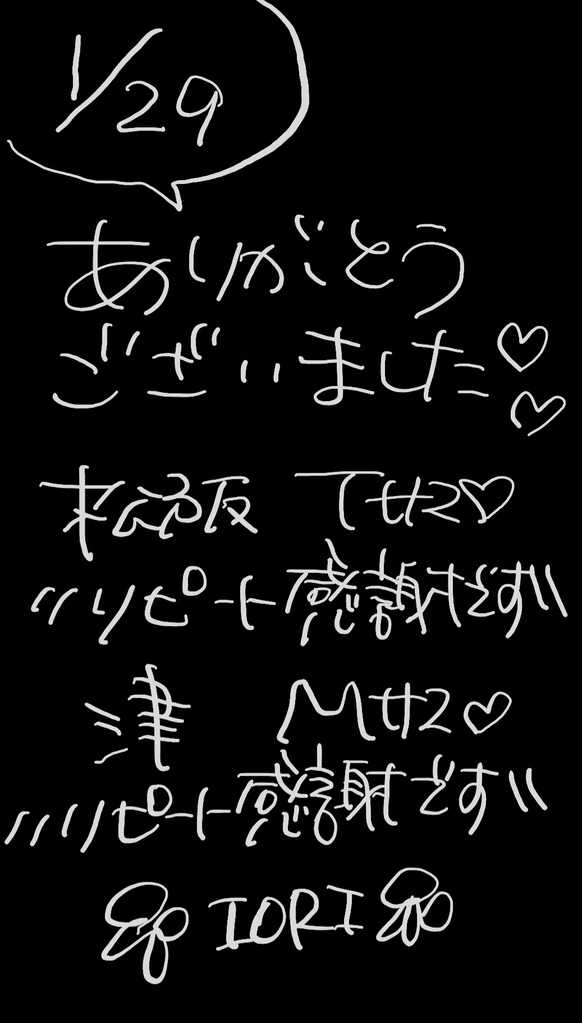 1/29
ありがとう
ございました♡♡
松阪 Tサマ♡
〃リピート感謝です〃
津 Mサマ♡
〃リピート感謝です〃
IORI